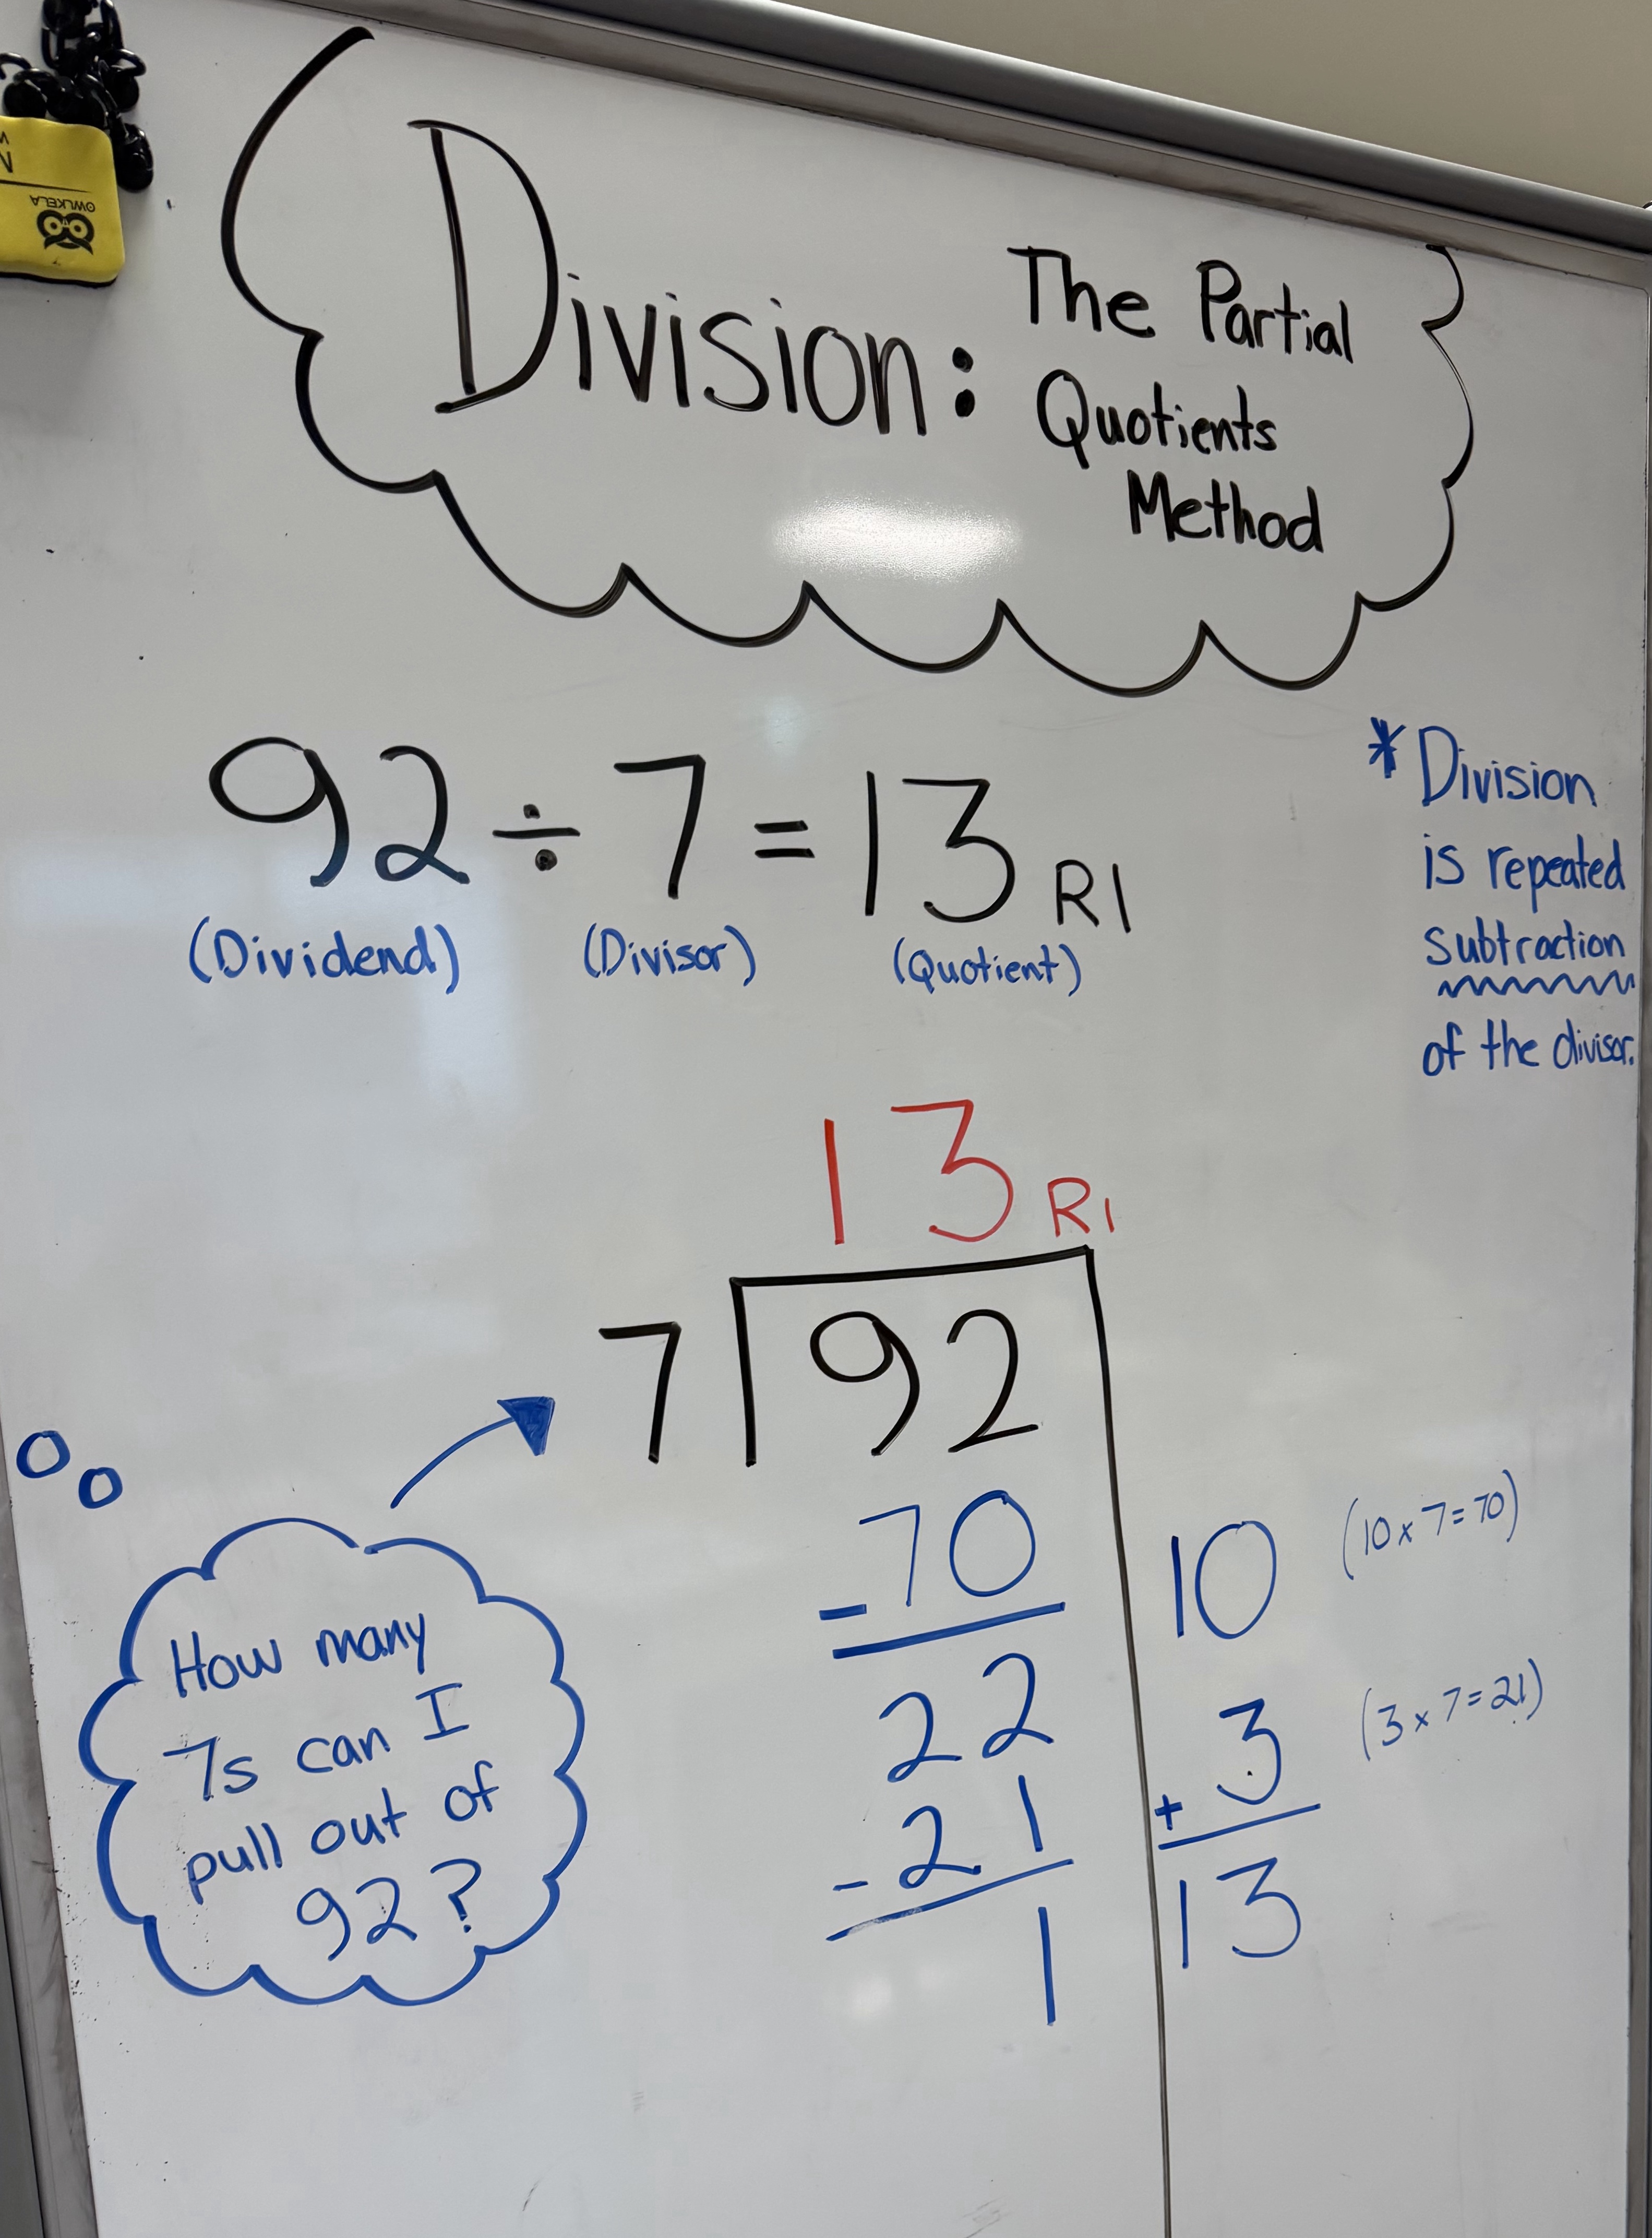 OWLKELA
Division:
The Partial
Quotients
Method
92 ÷ 7 = 13 R1
(Dividend) (Divisor) (Quotient)
* Division
is repeated
subtraction
of the divisor.
13 R1
7 92
-70 10 (10 x 7 = 70)
22
-21 + 3 (3 x 7 = 21)
1 13
How many
7s can I
pull out of
92?